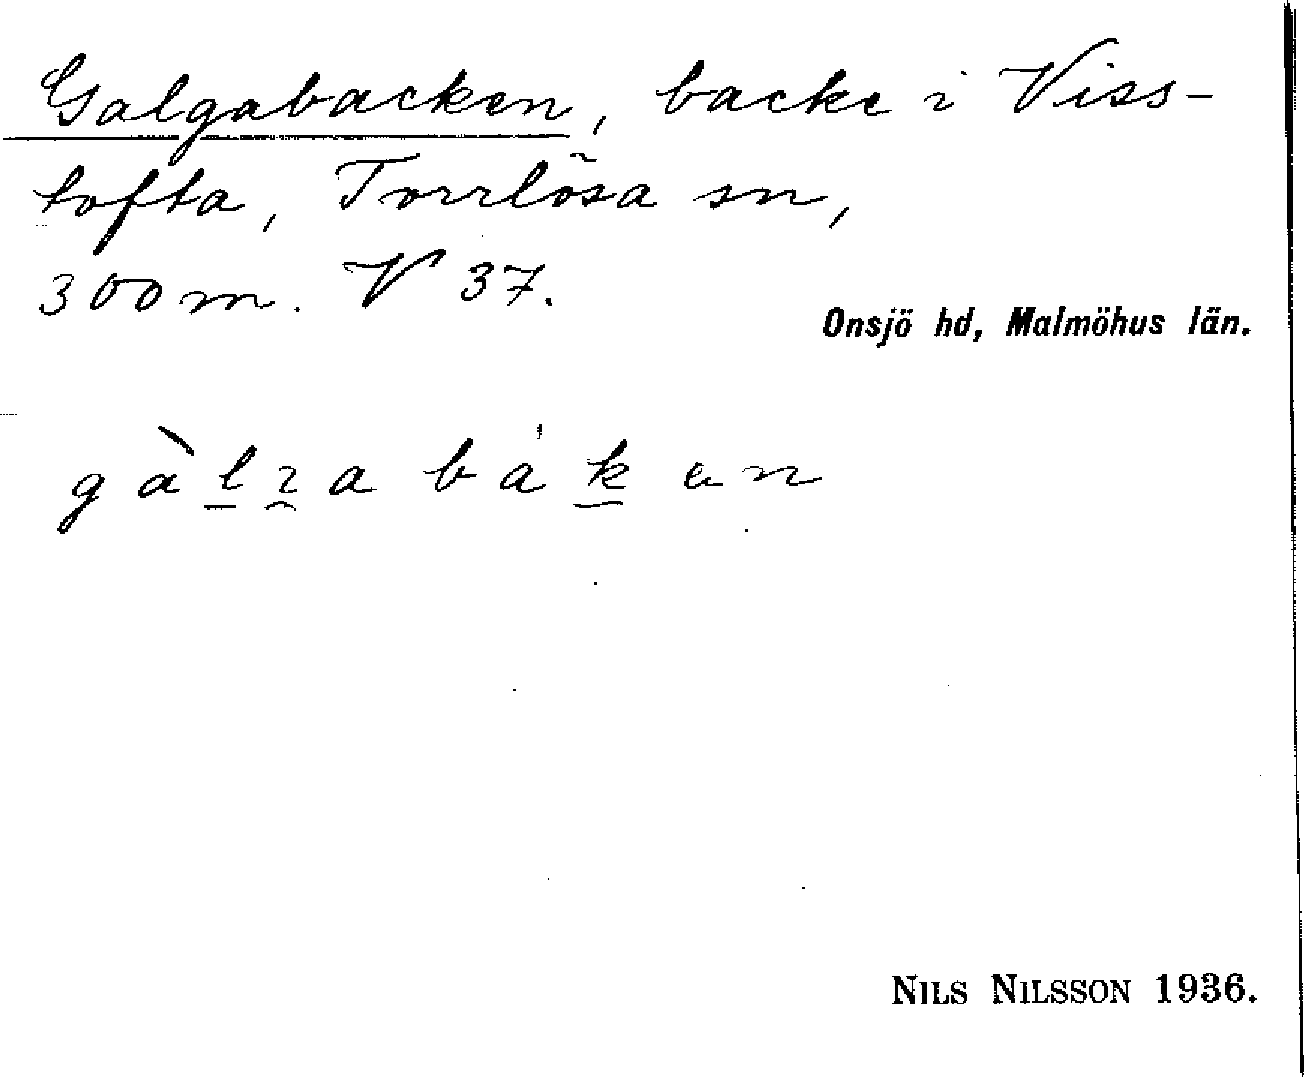 Galgabacken, backe i Viss-
tofta, Torrlösa sn,
300 m. V 37.
Onsjö hd, Malmöhus län.
NILS NILSSON 1936.